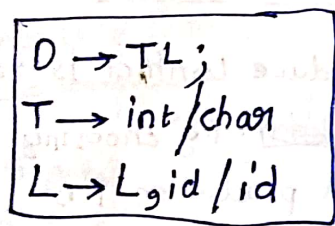 D → TL;
T → int/char
L → L,id/id